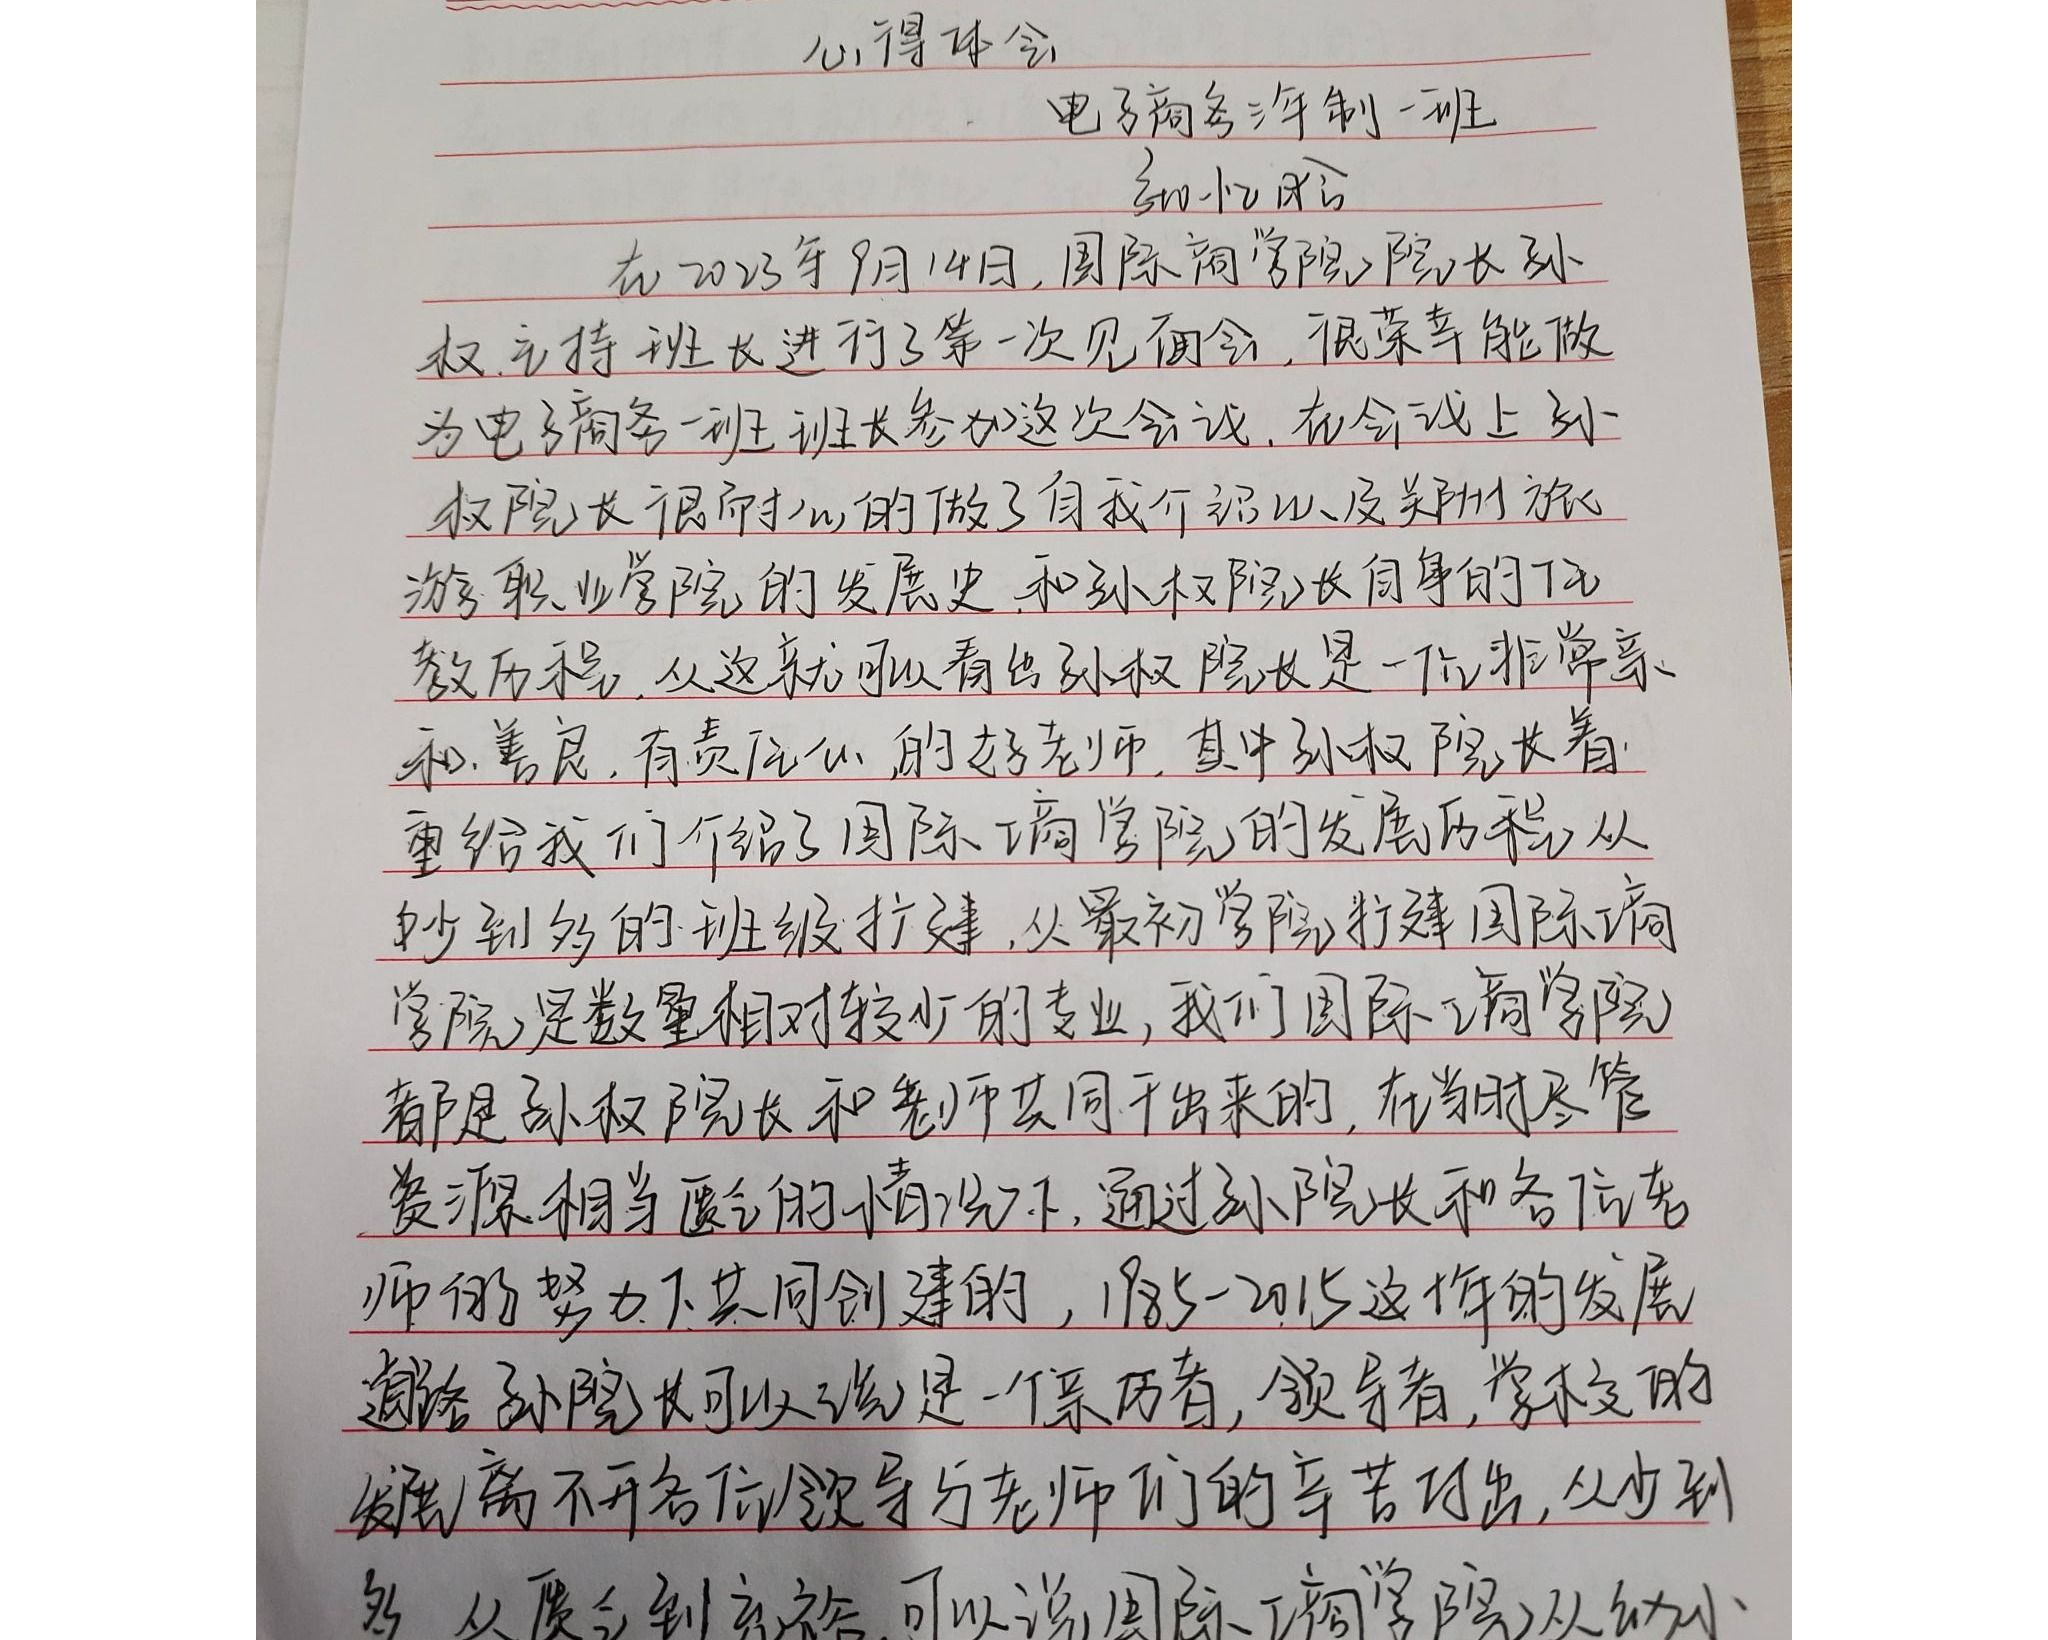 心得体会
电子商务三年制一班
在2023年9月14日,国际商学院院长孙
权主持班长进行了第一次见面会,很荣幸能做
为电子商务一班班长参加这次会议.在会议上孙
权院长很耐心的做了自我介绍以及郑州旅
游职业学院的发展史.和孙权院长自身的任
教历程.从这就可以看出孙权院长是一位非常亲
和.善良.有责任心的好老师.其中孙权院长着
重给我们介绍了国际工商学院的发展历程从
少到多的班级扩建.从最初学院扩建国际工商
学院是数量相对较少的专业,我们国际工商学院
都是孙权院长和老师共同干出来的,在当时尽管
资源相当匮乏的情况下,通过孙院长和各位老
师的努力下共同创建的,1985-2015这十年的发展
道路孙院长可以说是一个亲历者,领导者,学校的
发展离不开各位领导与老师们的辛苦付出,从少到
多 从匮乏到充裕.可以说国际工商学院从幼小